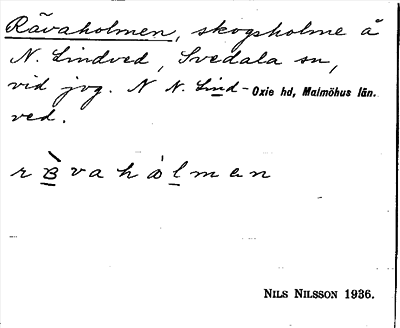 Rävaholmen, skogsholme å
N. Lindved, Svedala sn,
vid jvg. N N. Lind- Oxie hd, Malmöhus län.
ved.
r ʙ̀ v a h å l m e n
Nils Nilsson 1936.